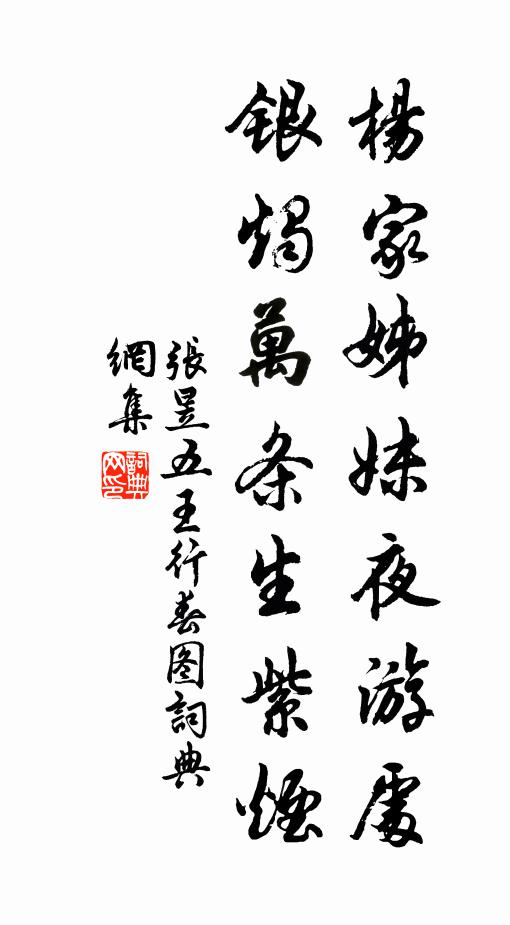 楊家姊妹夜游處
銀燭萬条生紫煙
張昱五王行春图詞典
網集
詞典网印